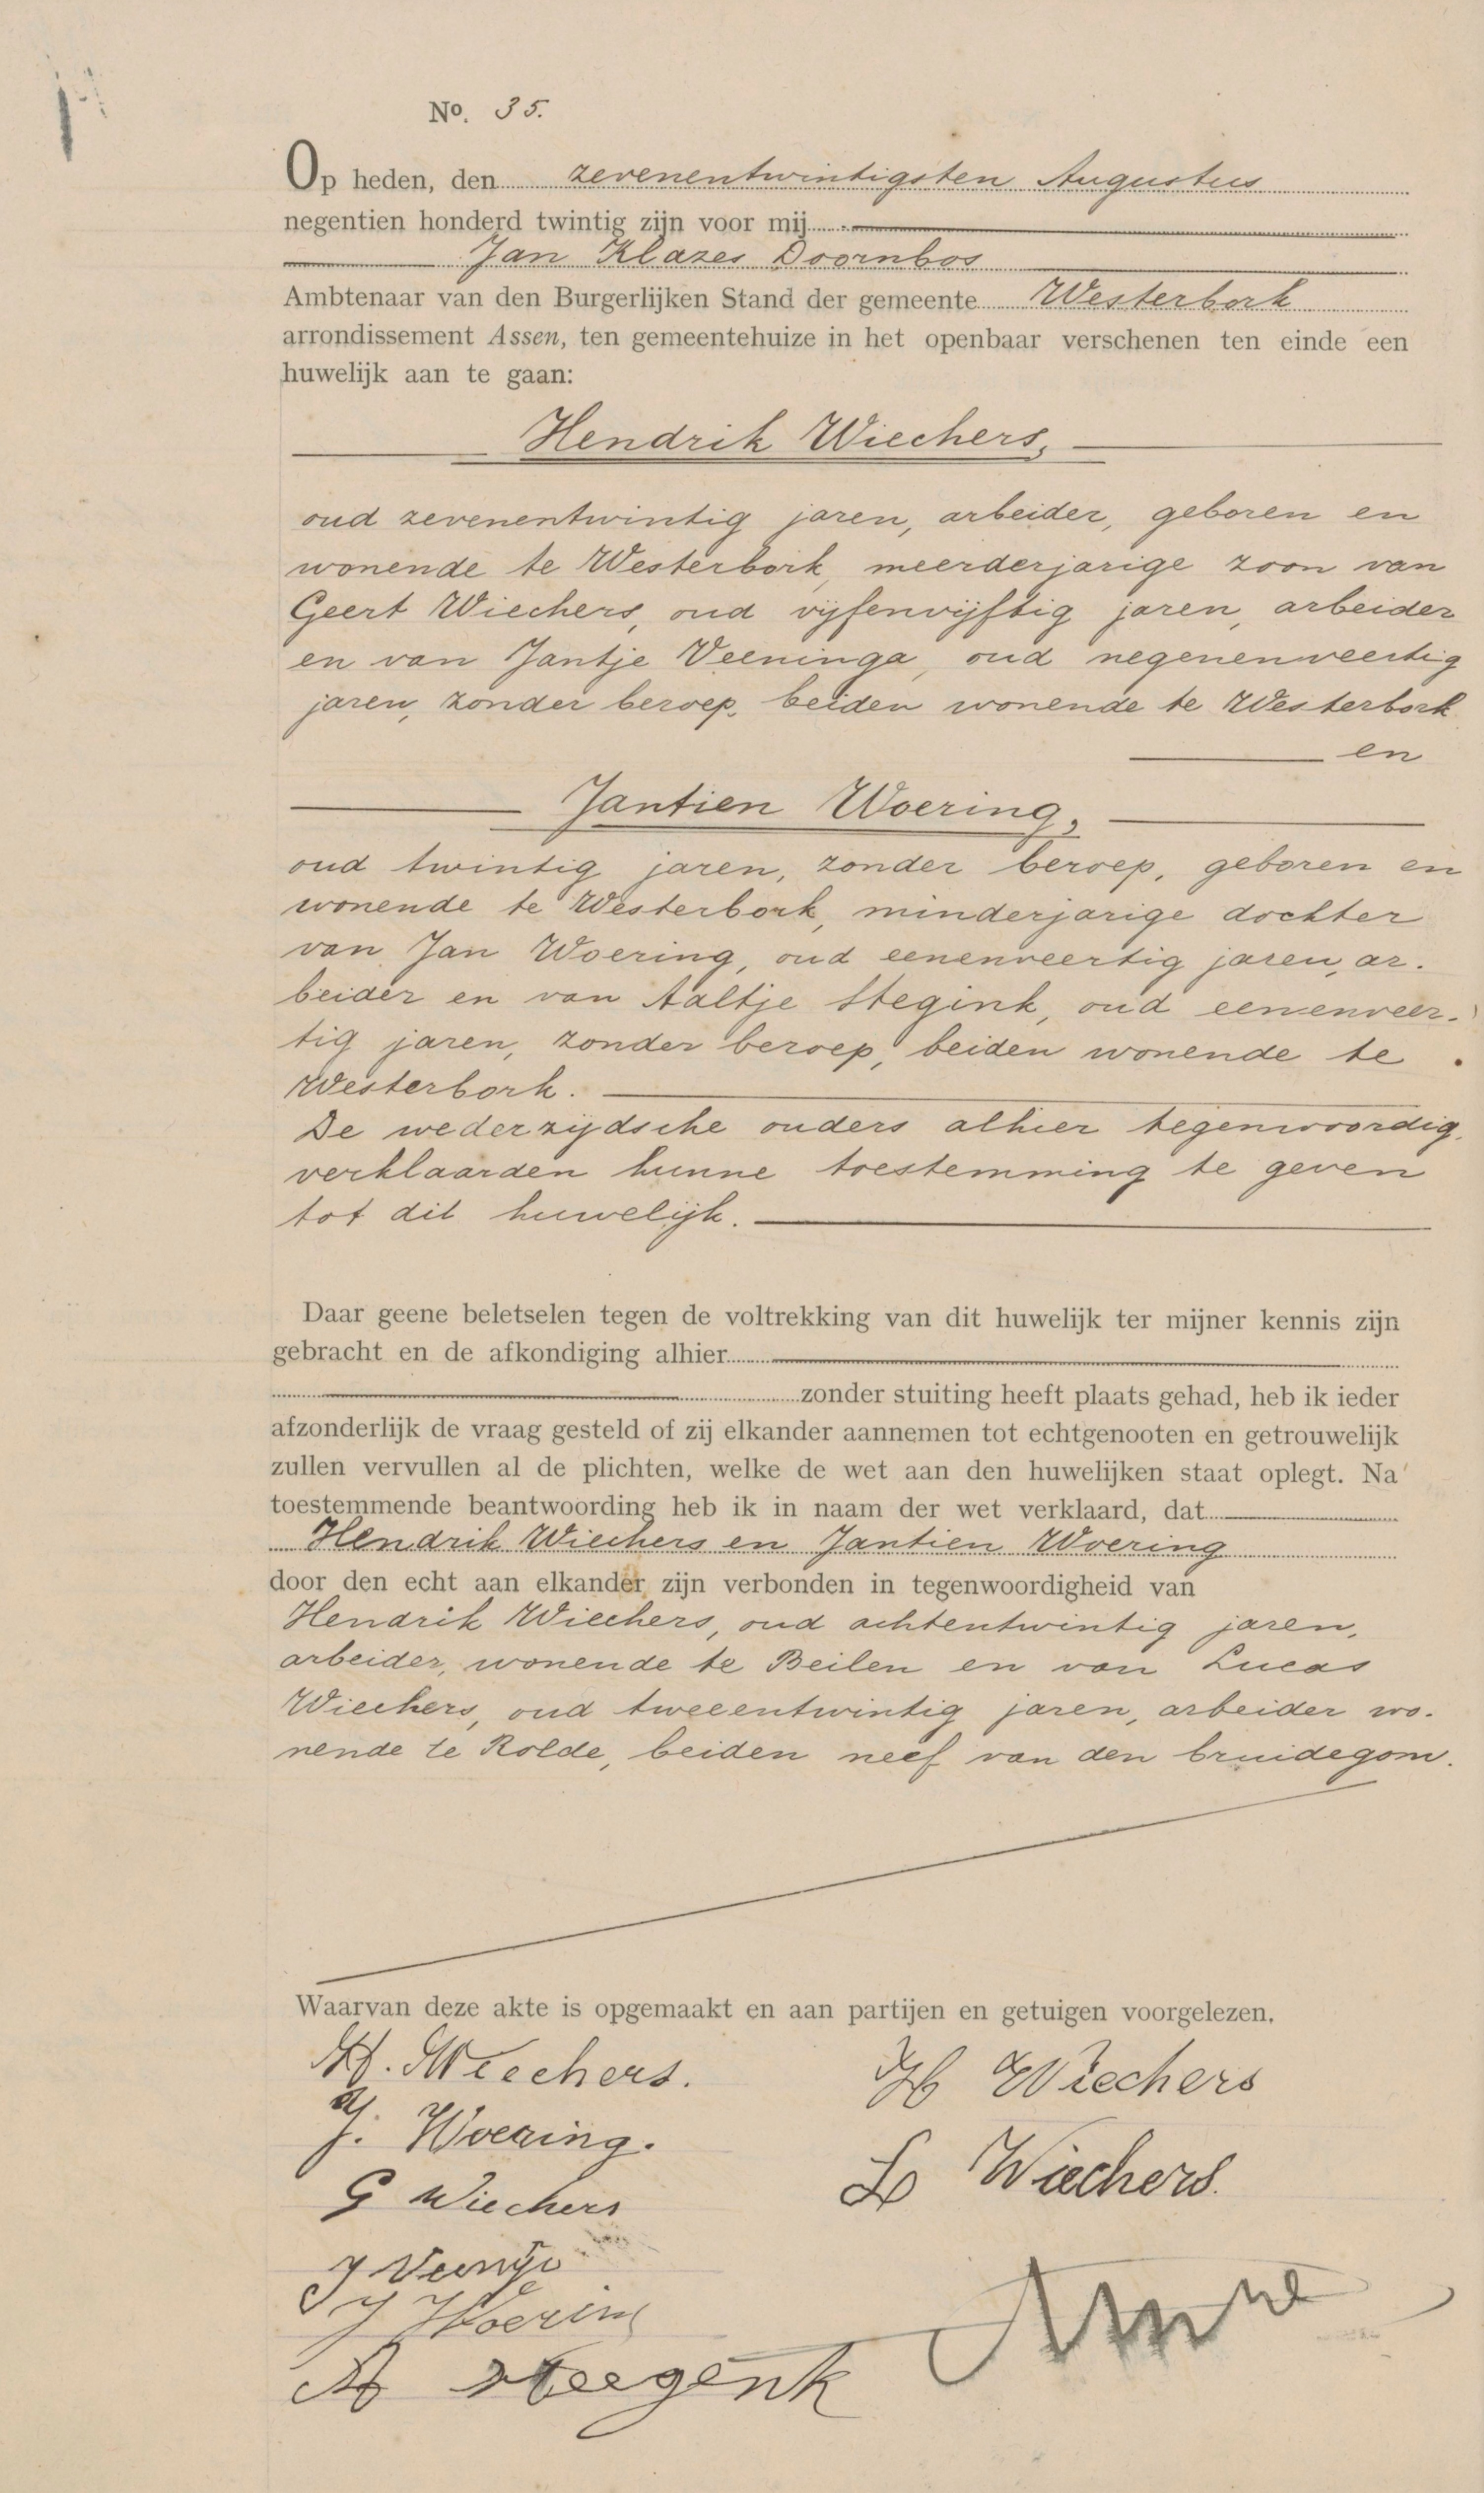 No. 35.
Op heden, den zevenentwintigsten Augustus
negentien honderd twintig zijn voor mij
Jan Klazes Doornbos
Ambtenaar van den Burgerlijken Stand der gemeente Westerbork
arrondissement Assen, ten gemeentehuize in het openbaar verschenen ten einde een
huwelijk aan te gaan:
Hendrik Wiechers,
oud zevenentwintig jaren, arbeider, geboren en
wonende te Westerbork, meerderjarige zoon van
Geert Wiechers, oud vijfenvijftig jaren, arbeider
en van Jantje Veeninga, oud negenenveertig
jaren, zonder beroep, beiden wonende te Westerbork
en
Jantien Woering,
oud twintig jaren, zonder beroep, geboren en
wonende te Westerbork, minderjarige dochter
van Jan Woering, oud eenenveertig jaren, ar-
beider en van Aaltje Stegink, oud eenenveer-
tig jaren, zonder beroep, beiden wonende te
Westerbork.
De wederzijdsche ouders alhier tegenwoordig,
verklaarden hunne toestemming te geven
tot dit huwelijk.
Daar geene beletselen tegen de voltrekking van dit huwelijk ter mijner kennis zijn
gebracht en de afkondiging alhier
zonder stuiting heeft plaats gehad, heb ik ieder
afzonderlijk de vraag gesteld of zij elkander aannemen tot echtgenooten en getrouwelijk
zullen vervullen al de plichten, welke de wet aan den huwelijken staat oplegt. Na
toestemmende beantwoording heb ik in naam der wet verklaard, dat
Hendrik Wiechers en Jantien Woering
door den echt aan elkander zijn verbonden in tegenwoordigheid van
Hendrik Wiechers, oud achtentwintig jaren,
arbeider, wonende te Beilen en van Lucas
Wiechers, oud tweeentwintig jaren, arbeider wo-
nende te Rolde, beiden neef van den bruidegom.
Waarvan deze akte is opgemaakt en aan partijen en getuigen voorgelezen,
H. Wiechers.
J. Woering.
G Wiechers
J Veeninga
J Woering
A Steegenk
H Wiechers
L Wiechers.